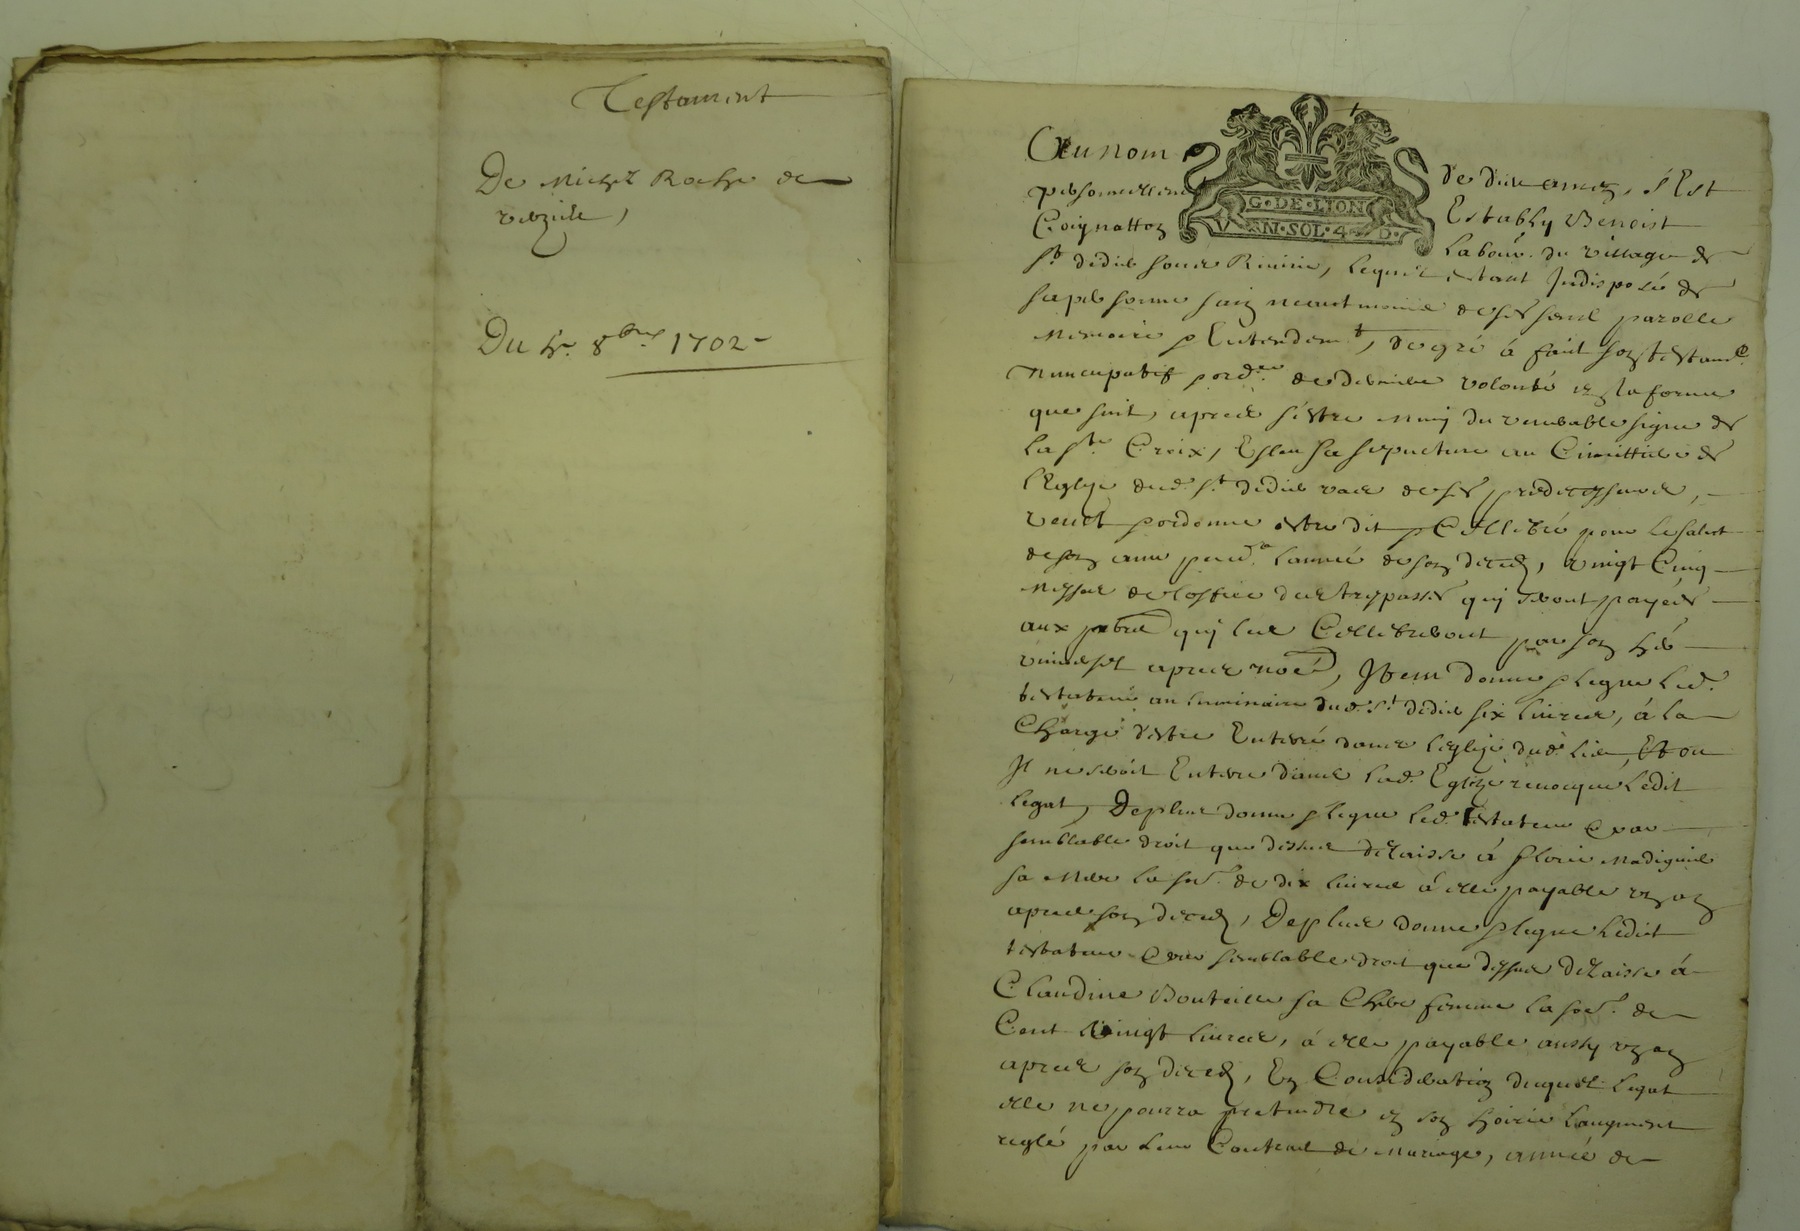 Testament
De Michel Roche de
verzieu,
Du 4e. 8bre 1702
Au nom de dieu amen, s'Est
personnellemt Establly Benoist
Coignatton labour. du village de
G·DE·LION
V EN·SOL·4 D·
st. didier sous Riverie, lequel estant Indisposé de
sa personne sain neantmoins de ses sens parolle
memoire & Entendemt, de gré à fait son testamt
Nuncupatif & ordre. de derniere volonté en la forme
que suit, apres s'estre muny du venerable signe de
la ste. Croix, Esleu sa sepulture au Cimittiere de
l'Eglize dud. st didier vase de ses predecesseurs,
veut & ordonne estre dit & Cellebré pour le salut
de son ame pend. l'année de son deceds, vingt Cinq
Messes de l'office des trespassés quy seront payées
aux pbres quy les Cellebreront par son her.
universel apres no'é, Item donne & legue led.
testateur au luminaire dud. st didier six livres, à la
Charge d'estre Enterré dans l'eglize dud. lieu, Et ou
Il ne seroit Enterré dans lad. Eglize revocque ledit
legat, Deplus donne & legue led. testateur & par
semblable droit que dessus delaisse à florie Madignier
sa Mere la so'e. de dix livres à elle payable un an
apres son deceds, Deplus donne & legue ledict
testateur & par semblable droit que dessus delaisse à
Claudine Bouteille sa Chere femme la so'e. de
Cent vingt livres, à elle payable aussy un an
apres son deceds, En Consideration duquel legat
elle ne pourra pretendre en son hoirie l'augment
reglé par leur Contract de Mariage, année de